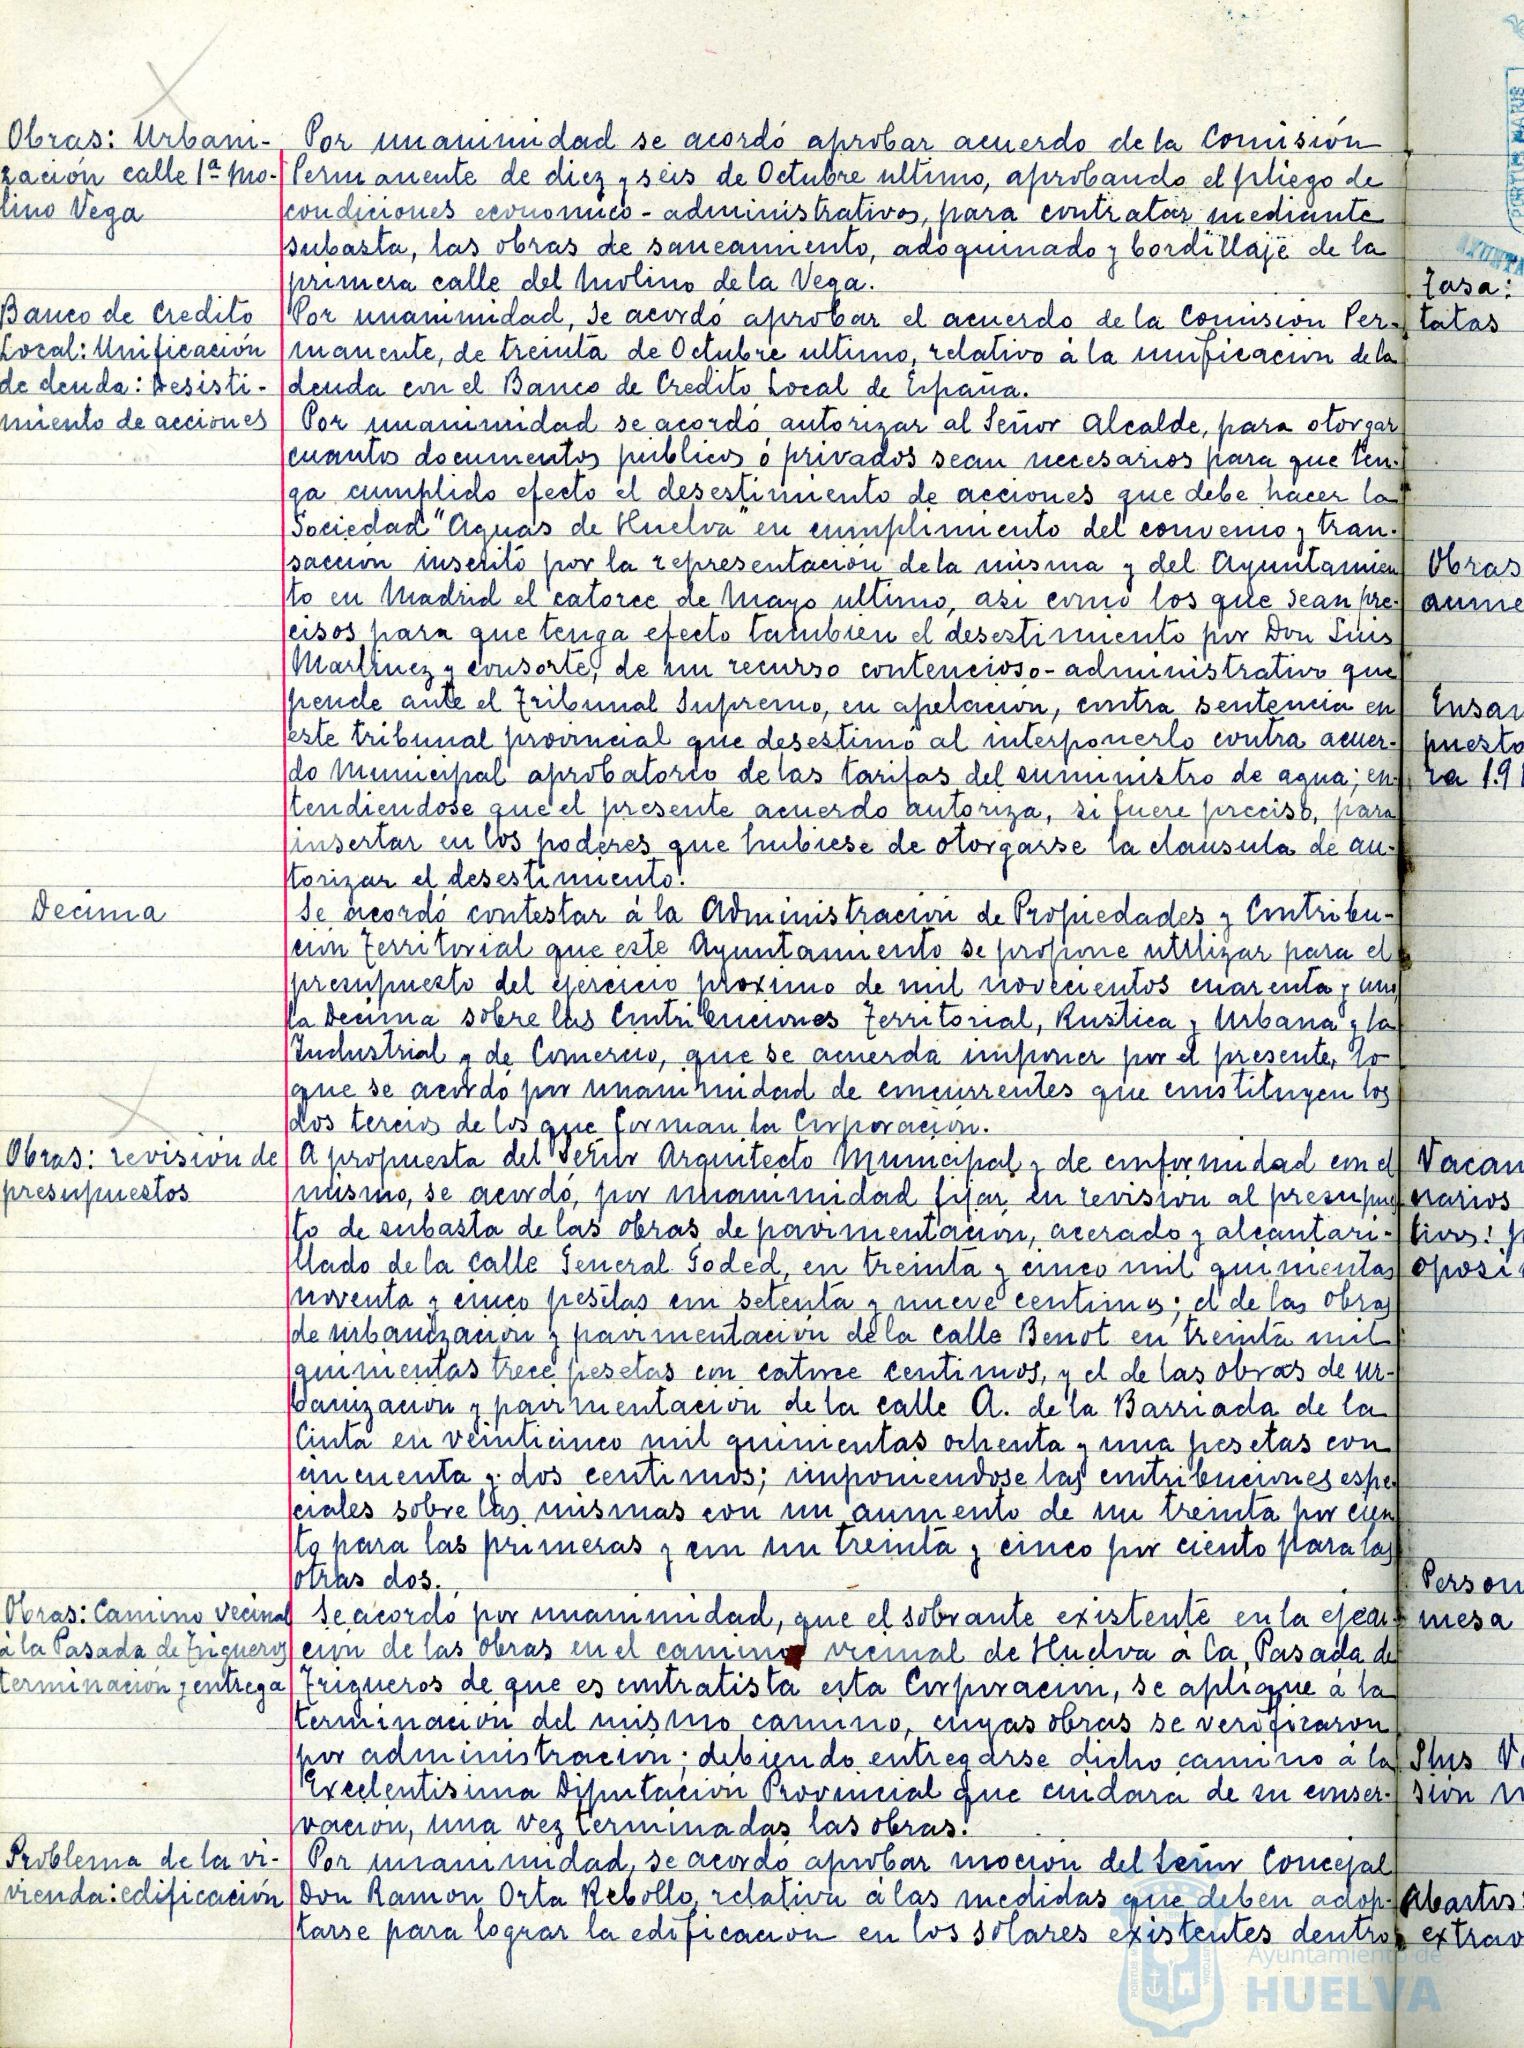 Obras: Urbani-
zación calle 1ª Mo-
lino Vega
Por unanimidad se acordó aprobar acuerdo de la Comisión
Permanente de diez y seis de Octubre ultimo, aprobando el pliego de
condiciones economico-administrativas, para contratar mediante
subasta, las obras de saneamiento, adoquinado y bordillaje de la
primera calle del Molino de la Vega.
Banco de Credito
Local: Unificación
de deuda: Desisti-
miento de acciones
Por unanimidad, se acordó aprobar el acuerdo de la Comision Per-
manente, de treinta de Octubre ultimo, relativo á la unificacion de la
deuda con el Banco de Credito Local de España.
Por unanimidad se acordó autorizar al Señor Alcalde, para otorgar
cuantos documentos publicos ó privados sean necesarios para que ten-
ga cumplido efecto el desestimiento de acciones que debe hacer la
Sociedad "Aguas de Huelva" en cumplimiento del convenio y tran-
sacción inscrito por la representación de la misma y del Ayuntamien
to en Madrid el catorce de Mayo ultimo, asi como los que sean pre-
cisos para que tenga efecto tambien el desestimiento por Don Luis
Martinez y consorte, de un recurso contencioso-administrativo que
pende ante el Tribunal Supremo, en apelación, contra sentencia en
este tribunal provincial que desestimó al interponerlo contra acuer-
do Municipal aprobatorio de las tarifas del suministro de agua; en-
tendiendose que el presente acuerdo autoriza, si fuere preciso, para
insertar en los poderes que hubiese de otorgarse la clausula de au-
torizar el desestimiento.
Decima
Se acordó contestar á la Administración de Propiedades y Contribu-
ción Territorial que este Ayuntamiento se propone utilizar para el
presupuesto del ejercicio proximo de mil novecientos cuarenta y uno,
la Decima sobre las Contribuciones Territorial, Rustica y Urbana y la
Industrial y de Comercio, que se acuerda imponer por el presente, lo
que se acordó por unanimidad de concurrentes que constituyen los
dos tercios de los que forman la Corporación.
Obras: revisión de
presupuestos
A propuesta del Señor Arquitecto Municipal y de conformidad con el
mismo, se acordó, por unanimidad fijar en revisión al presupues
to de subasta de las obras de pavimentación, acerado y alcantari-
llado de la calle General Goded, en treinta y cinco mil quinientas
noventa y cinco pesetas con setenta y nueve centimos; el de las obras
de urbanización y pavimentación de la calle Benot en treinta mil
quinientas trece pesetas con catorce centimos, y el de las obras de ur-
banización y pavimentación de la calle A. de la Barriada de la
Cinta en veinticinco mil quinientas ochenta y una pesetas con
cincuenta y dos centimos; imponiendose las contribuciones espe-
ciales sobre las mismas con un aumento de un treinta por cien
to para las primeras y con un treinta y cinco por ciento para las
otras dos.
Obras: Camino vecinal
á la Pasada de Trigueros
terminación y entrega
Se acordó por unanimidad, que el sobrante existente en la ejecu-
ción de las obras en el camino vecinal de Huelva á la Pasada de
Trigueros de que es contratista esta Corporación, se aplique á la
terminación del mismo camino, cuyas obras se verificaron
por administración; debiendo entregarse dicho camino á la
Excelentisima Diputación Provincial que cuidara de su conser-
vación, una vez terminadas las obras.
Problema de la vi-
vienda: edificación
Por unanimidad, se acordó aprobar moción del Señor Concejal
Don Ramon Orta Rebollo, relativa á las medidas que deben adop-
tarse para lograr la edificacion en los solares existentes dentro
Tasa:
tatas
Obras
aume
Ensan
puesto
ra 191
Vacan
narios
tivos: p
oposi
Person
mesa
Plus V
sion
Abastos:
extrav
PORTUS MARIS
AYUNTA
Ayuntamiento de
HUELVA